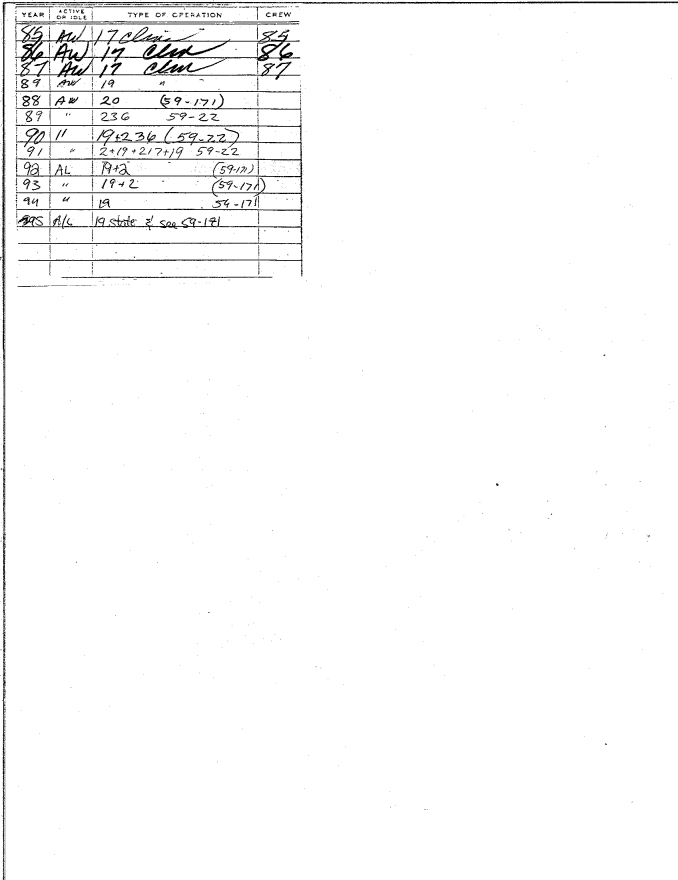 YEAR ACTIVE OR IDLE TYPE OF OPERATION CREW
85 AW 17 Clms 85
86 AW 17 Clm 86
87 AW 17 Clm 87
89 AW 19 "
88 AW 20 (59-171)
89 " 236 59-22
90 11 19+236 (59-22)
91 " 2+19+217+19 59-22
92 AL 19+2 (59-171)
93 " 19+2 (59-171)
94 " 19 59-171
95 A/L 19 state & see 59-171